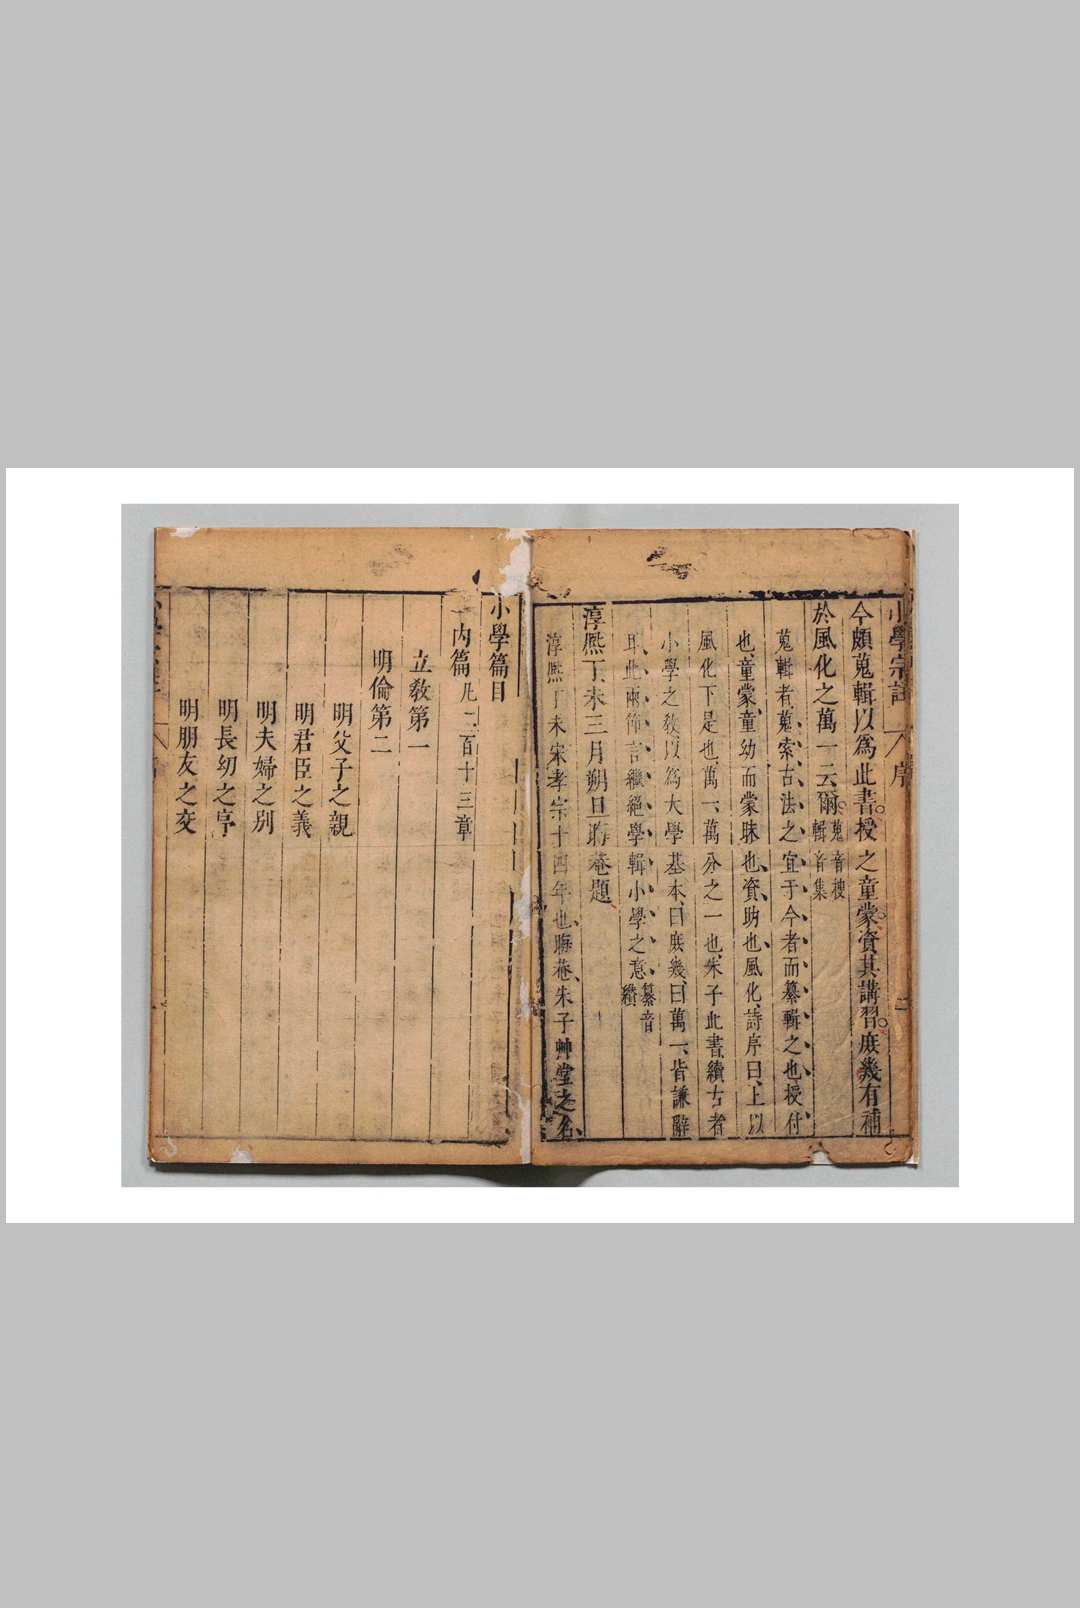 小學宗註 序
今頗蒐輯以爲此書授之童蒙資其講習庶幾有補
於風化之萬一云爾蒐音搜輯音集
蒐輯者蒐索古法之宜于今者而纂輯之也授付
也童蒙童幼而蒙昧也資助也風化詩序曰上以
風化下是也萬一萬分之一也朱子此書續古者
小學之教以爲大學基本曰庶幾曰萬一皆謙辭
耳此兩節言繼絕學輯小學之意纂音纘
淳熈丁未三月朔旦晦菴題
淳熈丁未宋孝宗十四年也晦菴朱子艸堂之名
小學篇目
内篇凡二百十三章
立敎第一
明倫第二
明父子之親
明君臣之義
明夫婦之别
明長幼之序
明朋友之交